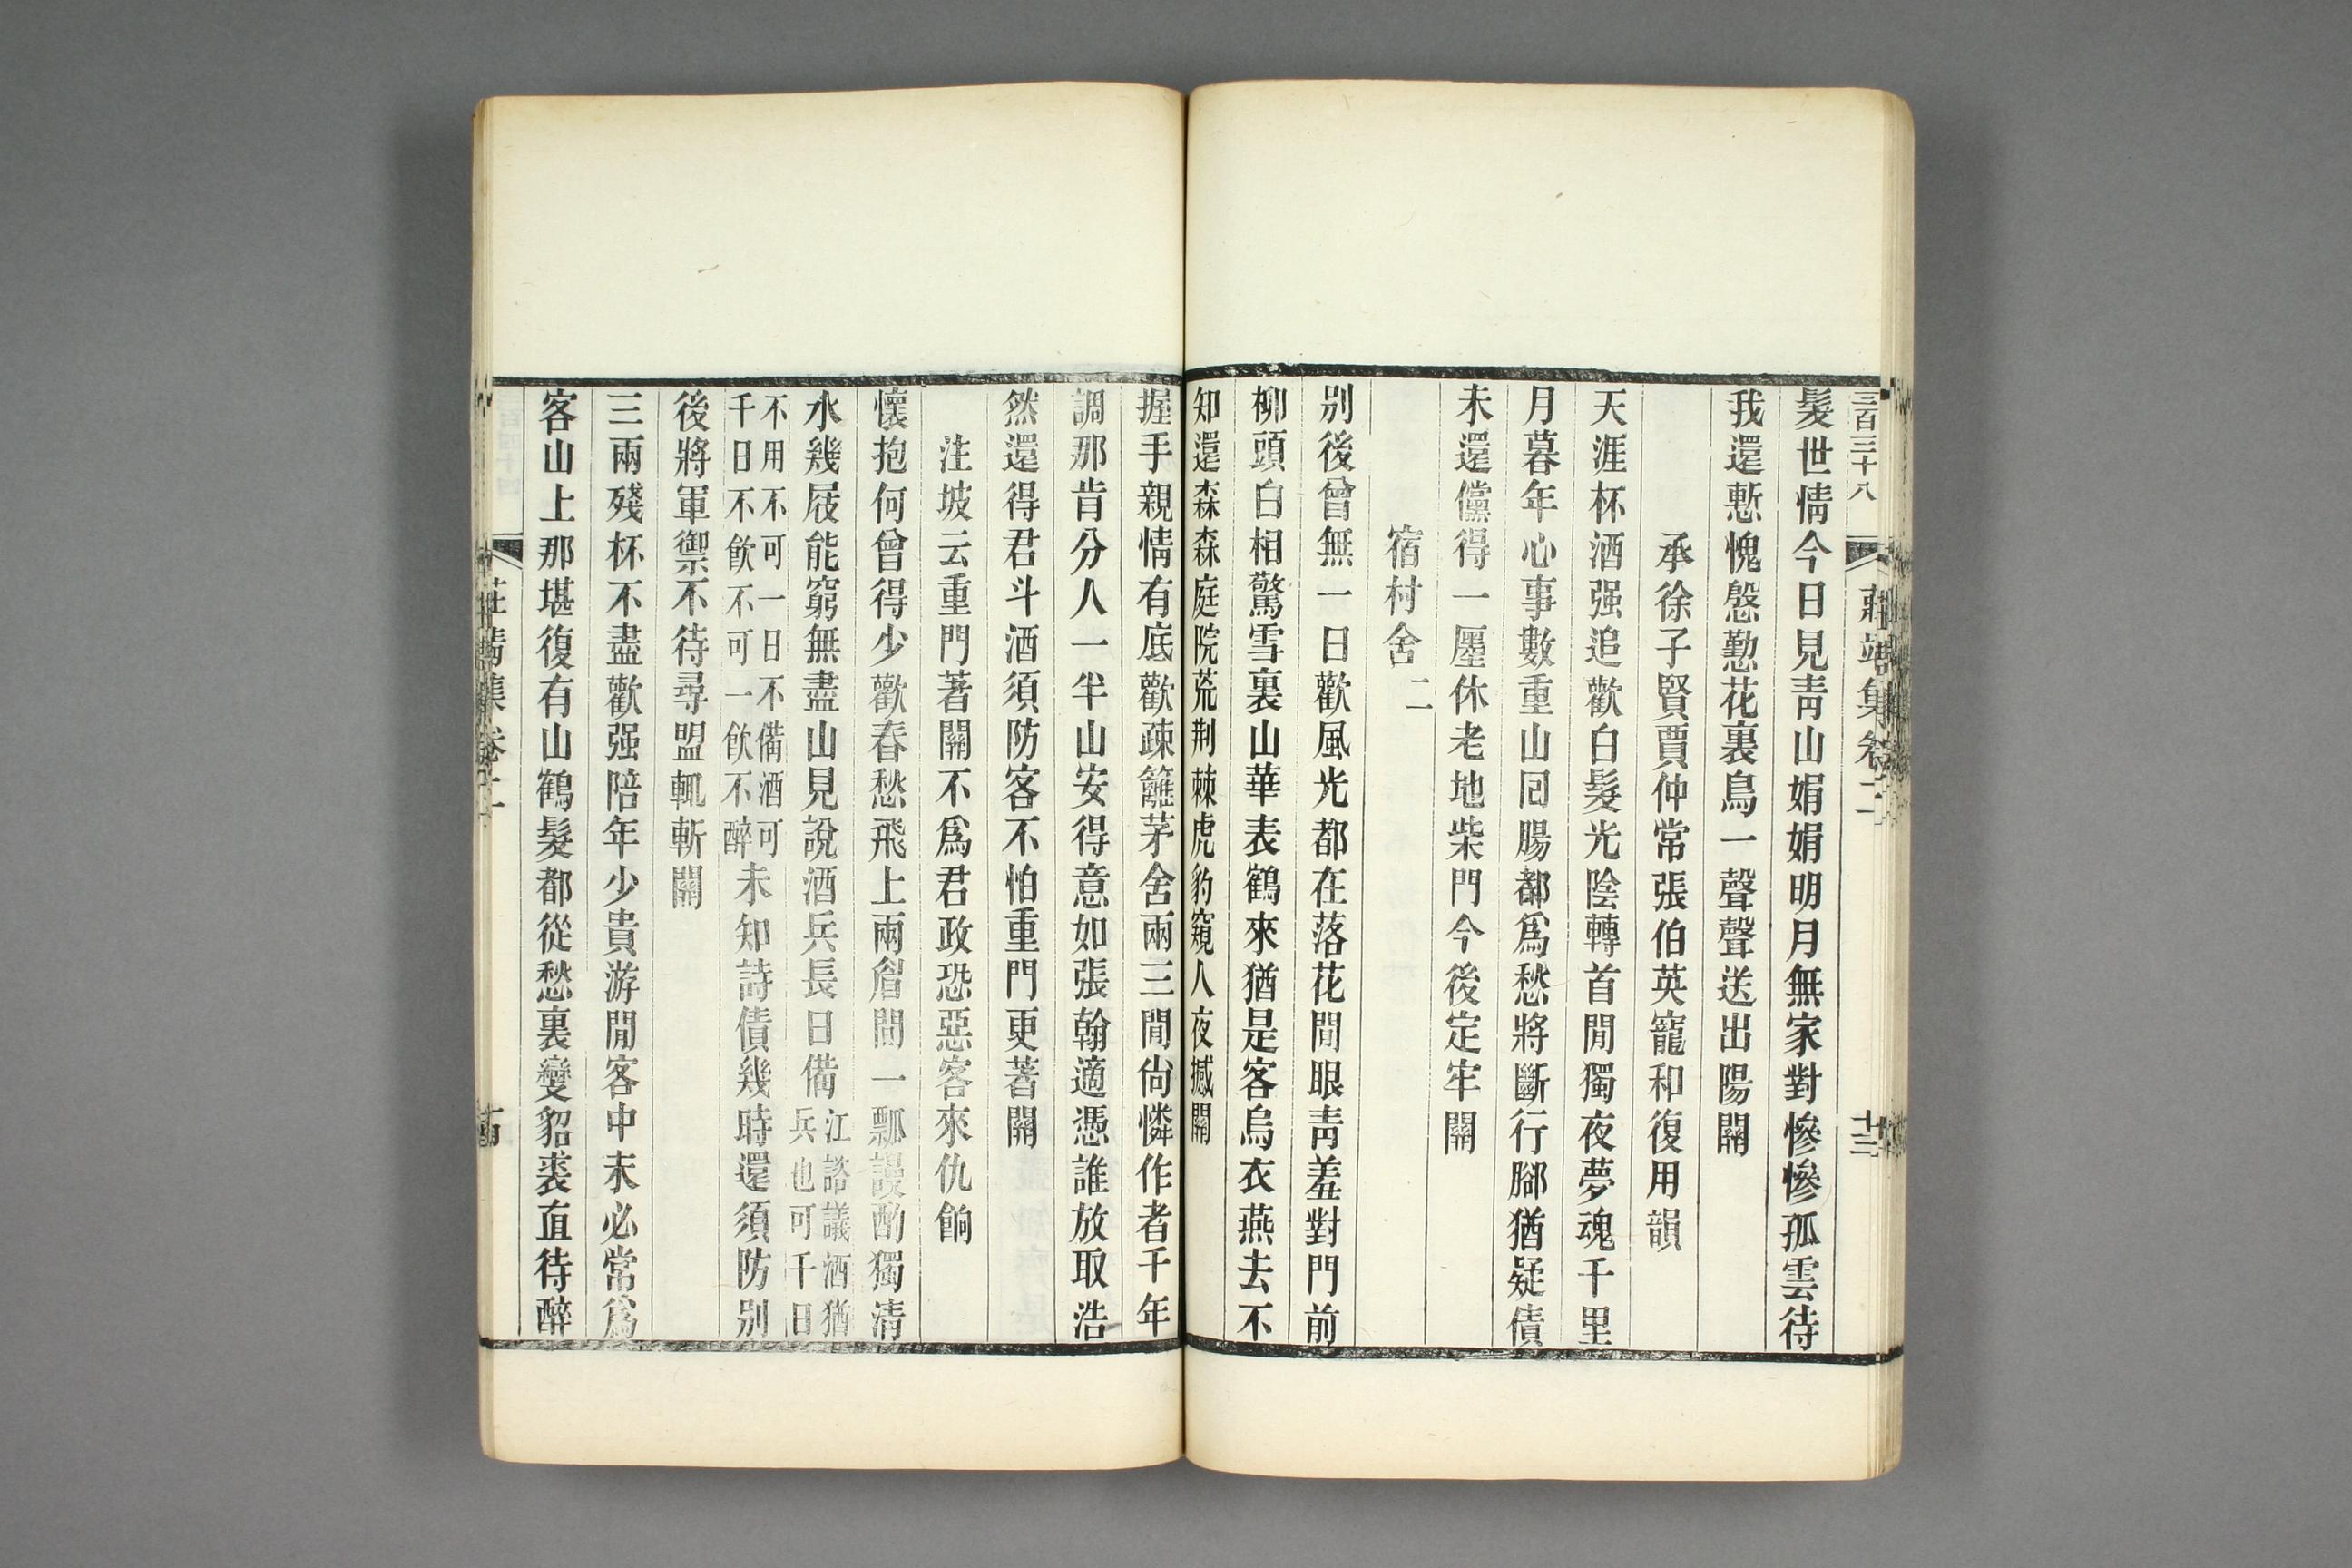 三百三十八
莊靖集卷二
十三
髮世情今日見青山娟娟明月無家對慘慘孤雲待
我還慙愧慇懃花裏鳥一聲聲送出陽關
承徐子賢賈仲常張伯英寵和復用韻
天涯杯酒强追歡白髮光陰轉首閒獨夜夢魂千里
月暮年心事數重山回腸都爲愁將斷行腳猶疑債
未還儻得一廛休老地柴門今後定牢關
宿村舍二
别後曾無一日歡風光都在落花閒眼青羞對門前
柳頭白相驚雪裏山華表鶴來猶是客烏衣燕去不
知還森森庭院荒荆棘虎豹窺人夜撼關
握手親情有底歡疎籬茅舍兩三閒尙憐作者千年
調那肯分人一半山安得意如張翰適憑誰放取浩
然還得君斗酒須防客不怕重門更著關
注坡云重門著關不爲君政恐惡客來仇餉
懷抱何曾得少歡春愁飛上兩眉閒一瓢謾酌獨清
水幾屐能窮無盡山見說酒兵長日備江諮議酒猶兵也可千日
不用不可一日不備酒可千日不飮不可一飮不醉未知詩債幾時還須防别
後將軍禦不待尋盟輒斬關
三兩殘杯不盡歡强陪年少貴游閒客中未必常爲
客山上那堪復有山鶴髮都從愁裏變貂裘直待醉
莊靖集卷二